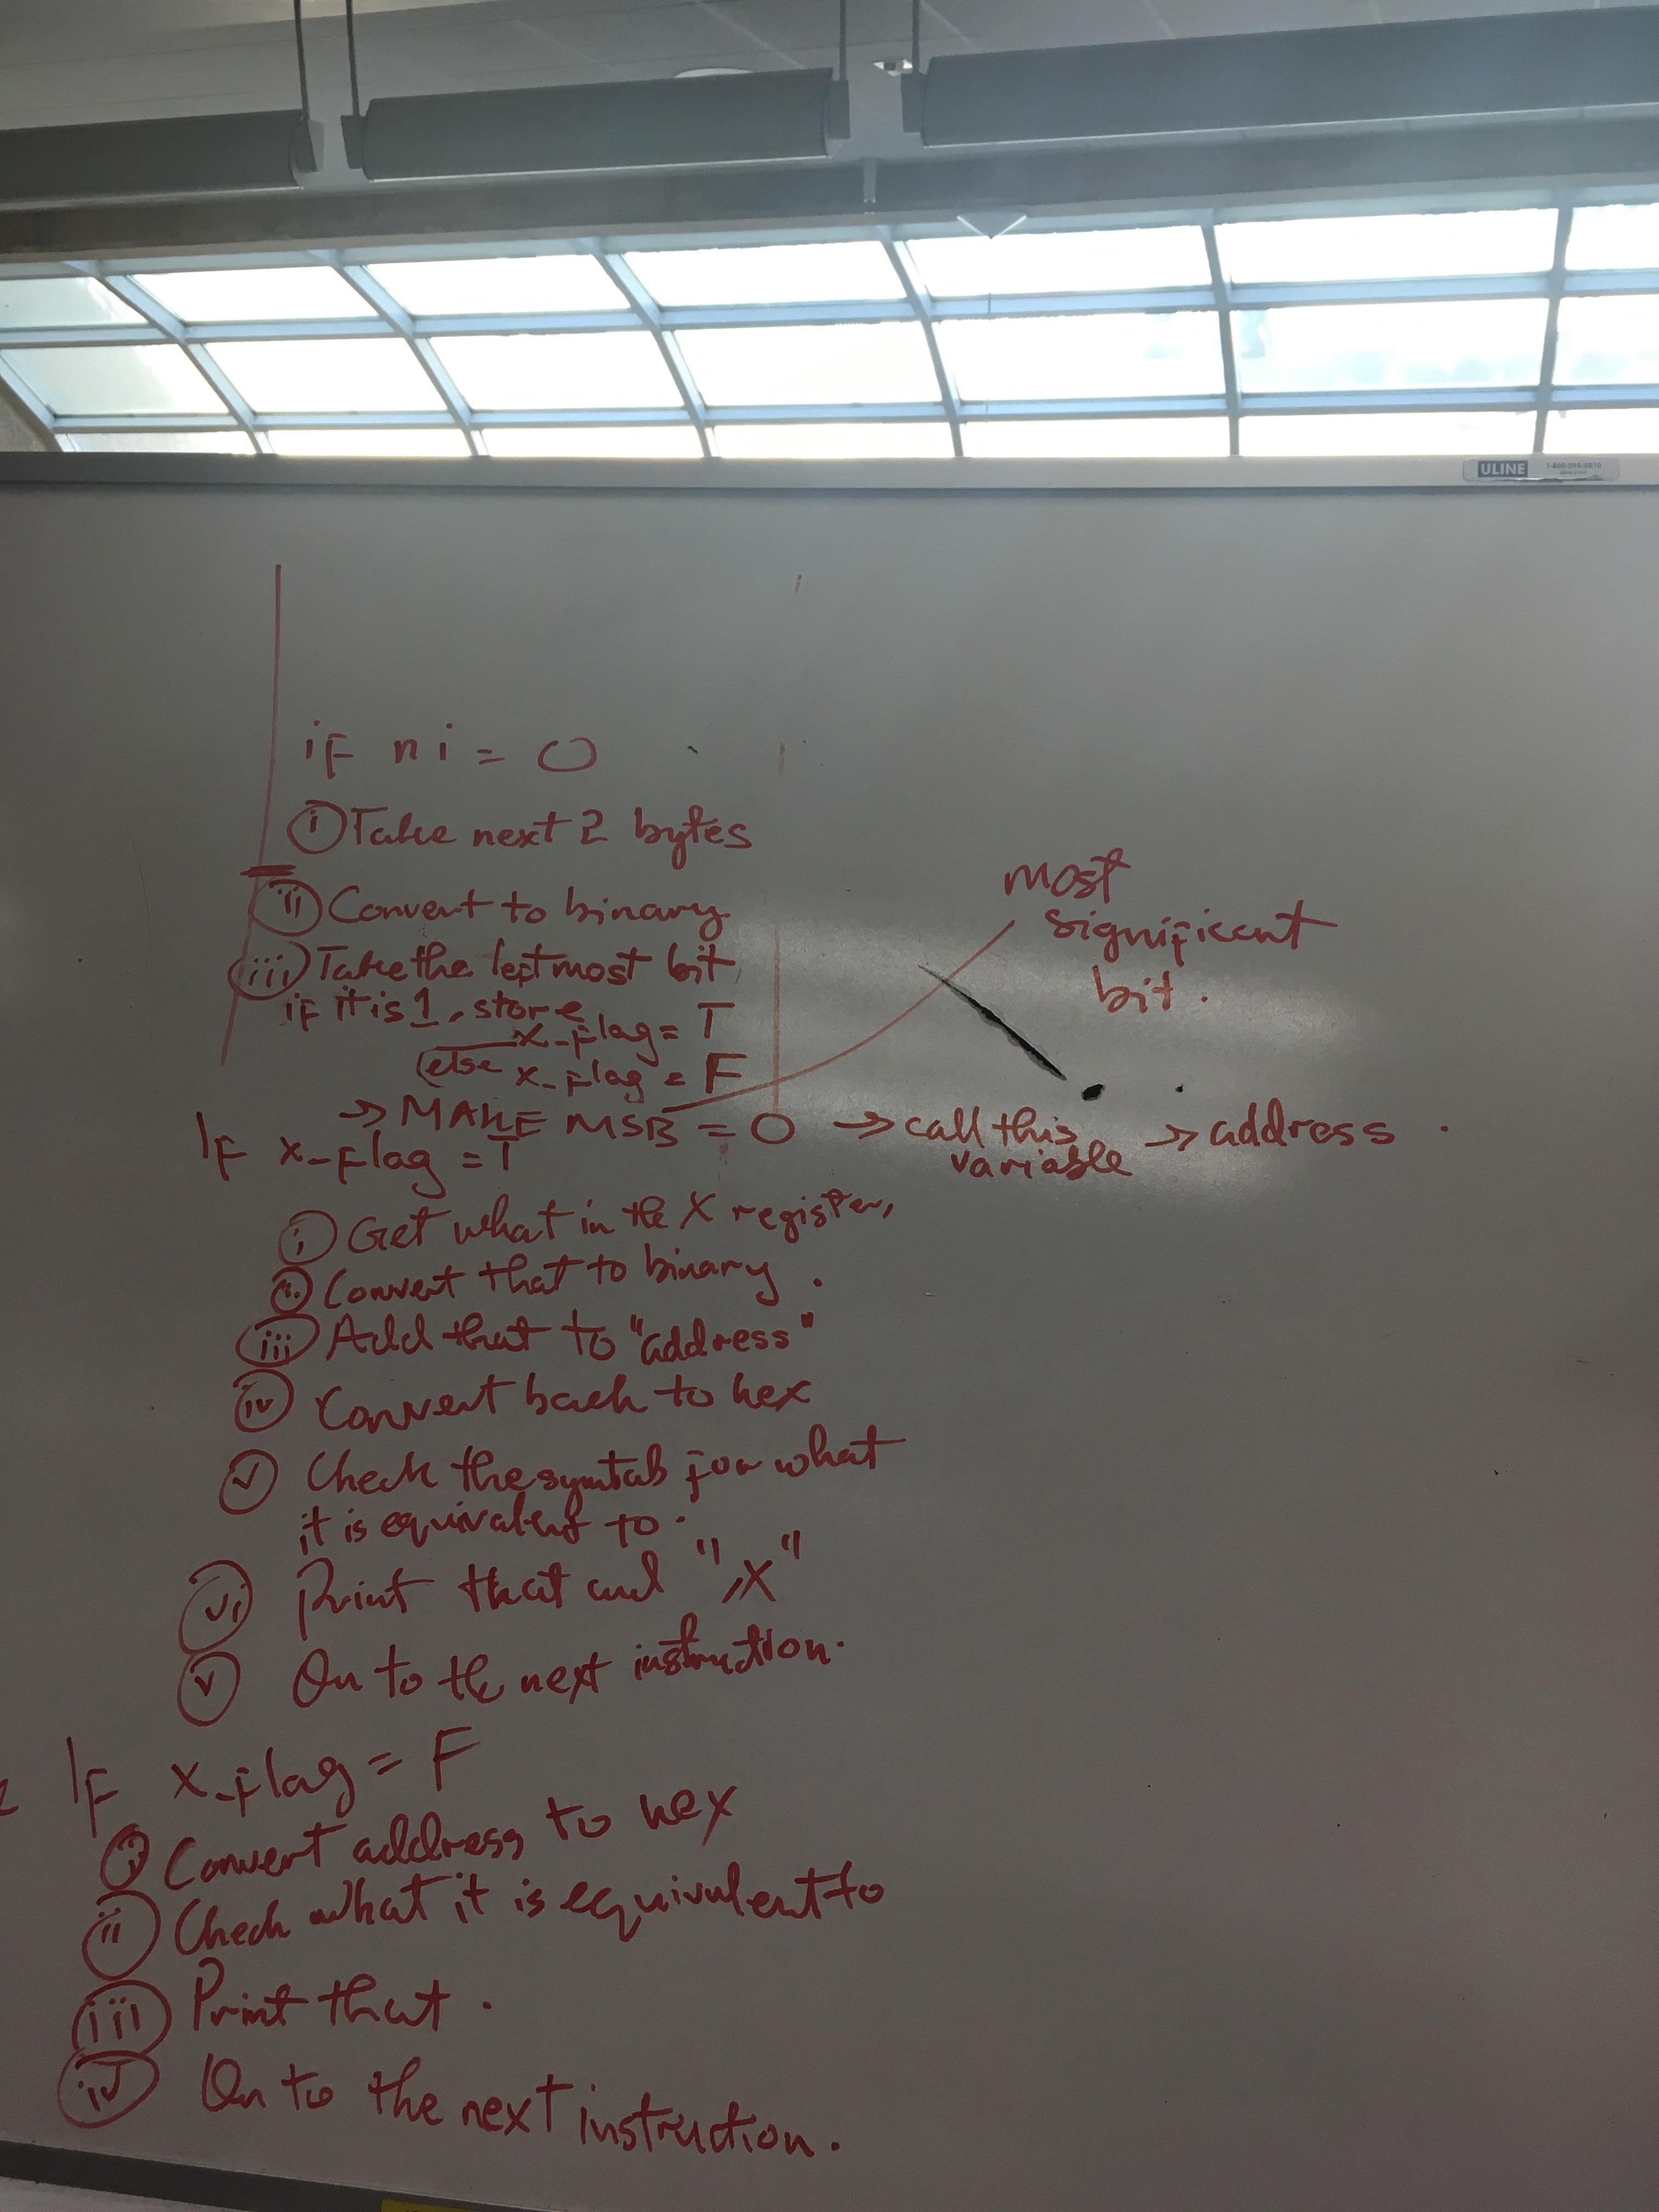 ULINE 1-800-295-5510
uline.com
if ni = 0
i Take next 2 bytes
ii Convert to binary
iii Take the leftmost bit
if it is 1, store
x_flag = T
else x_flag = F
→ MAKE MSB = 0 → call this variable → address.
most
significant
bit.
If x_flag = T
i Get what in the X register,
ii Convert that to binary.
iii Add that to "address"
iv Convert back to hex
v Check the symtab for what
it is equivalent to.
vi Print that and ",X"
v On to the next instruction.
If x_flag = F
i Convert address to hex
ii Check what it is equivalent to
iii Print that.
iv On to the next instruction.